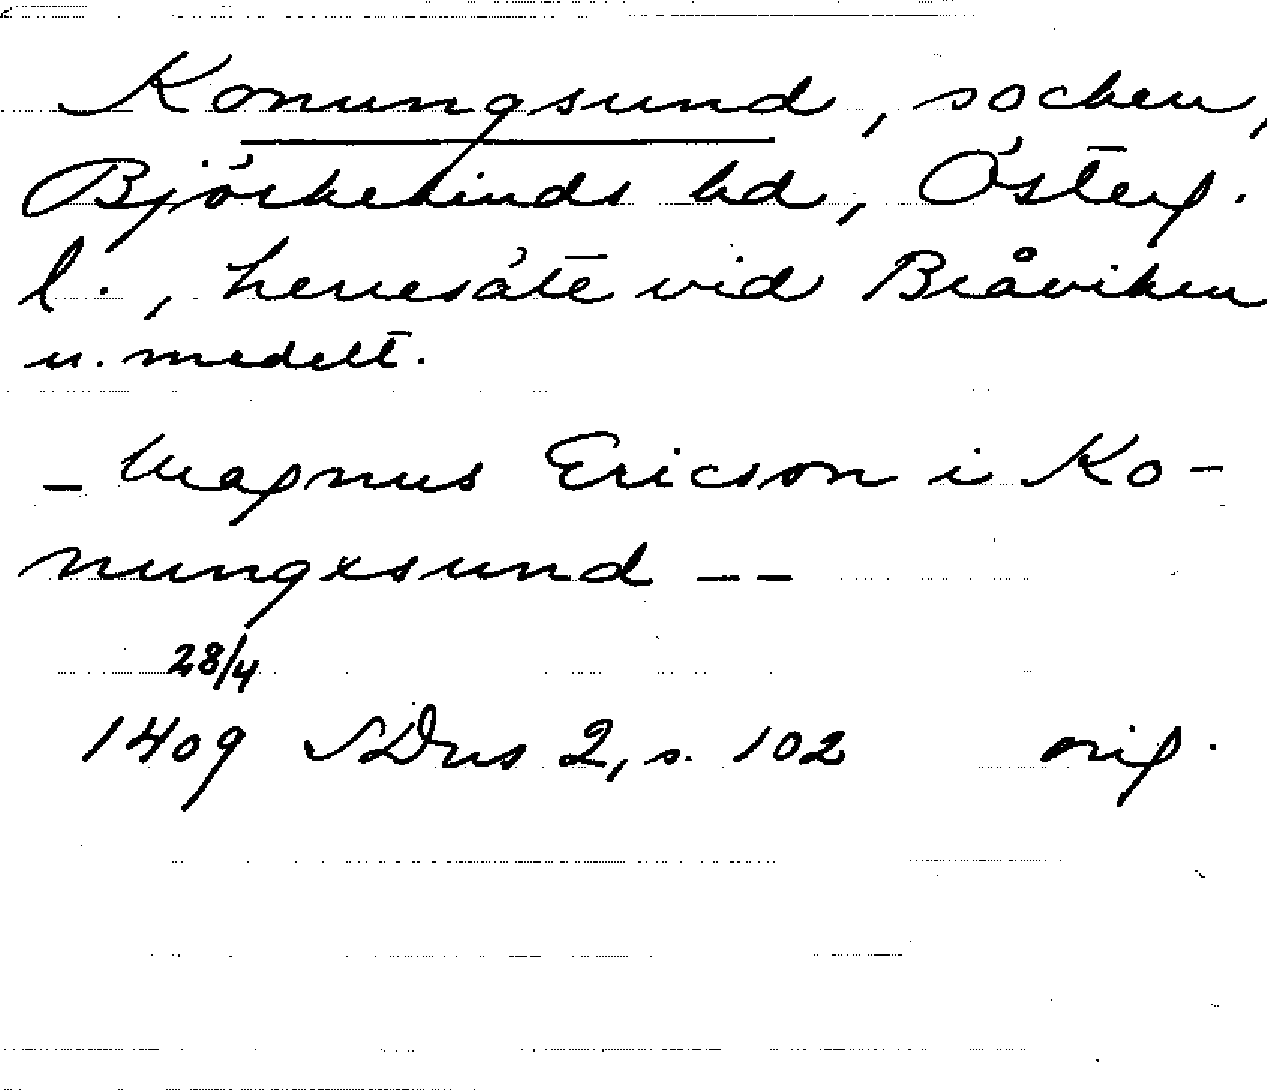 Konungsund, socken,
Björkekinds hd, Österg.
l., herresäte vid Bråviken
u. medelt.
- Magnus Ericson i Ko-
nungxsund --
28/4
1409 SDns 2, s. 102 orig.